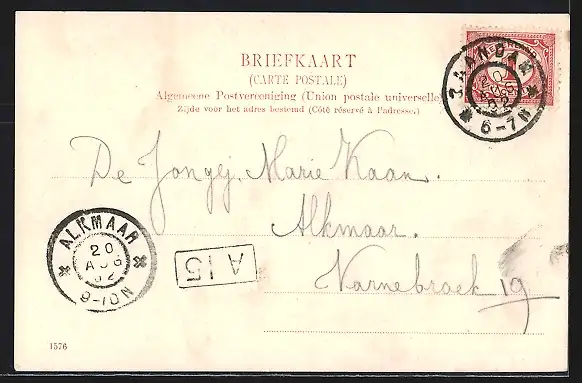 BRIEFKAART
(CARTE POSTALE)
Algemeene Postvereeniging (Union postale universelle)
Zijde voor het adres bestemd (Côté réservé à l'adresse.)
NEDERLAND
ZAANDAM
20
AUG
02
6-7N
De Jongej. Marie Kaan.
Alkmaar.
Varnebroek 19
ALKMAAR
20
AUG
02
9-10N
A 15
1576